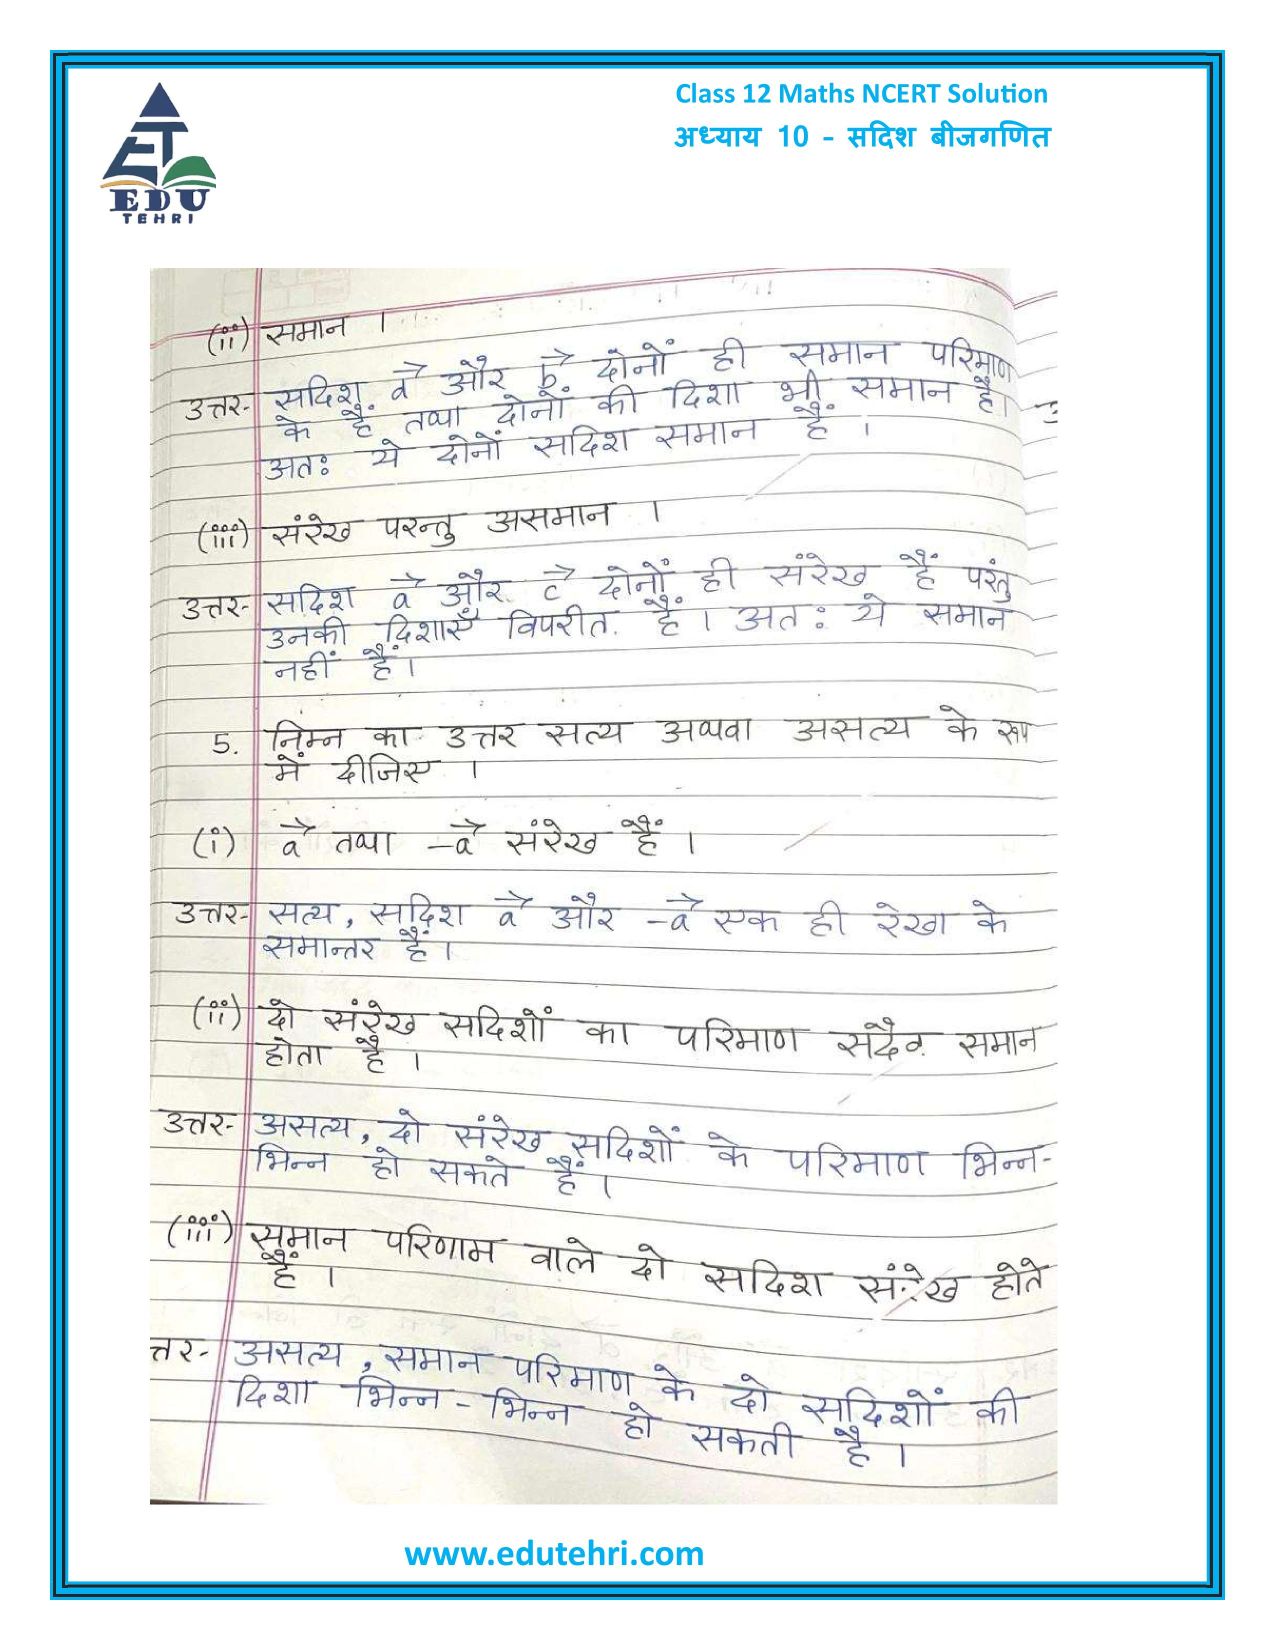 Class 12 Maths NCERT Solution
अध्याय 10 - सदिश बीजगणित
EDU
TEHRI
(ii) समान ।
उत्तर- सदिश a⃗ और b⃗ दोनों ही समान परिमाण
के हैं तथा दोनों की दिशा भी समान है।
अतः ये दोनों सदिश समान हैं ।
(iii) संरेख परन्तु असमान ।
उत्तर- सदिश a⃗ और c⃗ दोनों ही संरेख हैं परंतु
उनकी दिशाएँ विपरीत हैं । अतः ये समान
नहीं हैं।
5. निम्न का उत्तर सत्य अथवा असत्य के रूप
में दीजिए ।
(i) a⃗ तथा -a⃗ संरेख हैं ।
उत्तर- सत्य, सदिश a⃗ और -a⃗ एक ही रेखा के
समान्तर हैं ।
(ii) दो संरेख सदिशों का परिमाण सदैव समान
होता है ।
उत्तर- असत्य, दो संरेख सदिशों के परिमाण भिन्न-
भिन्न हो सकते हैं ।
(iii) समान परिणाम वाले दो सदिश संरेख होते
हैं ।
त्तर- असत्य, समान परिमाण के दो सदिशों की
दिशा भिन्न - भिन्न हो सकती है ।
www.edutehri.com